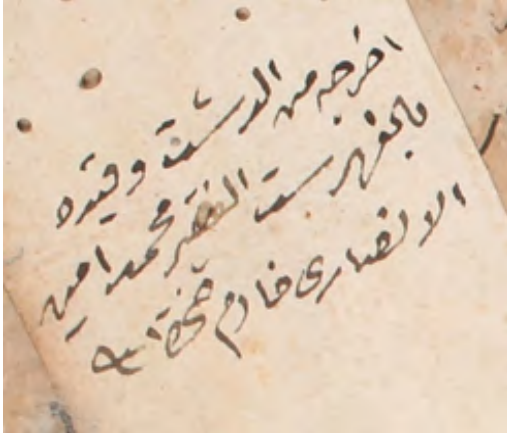 اخرجه من الدشت وقيده
بالفهرست الفقير محمد امين
الانصارى خادم